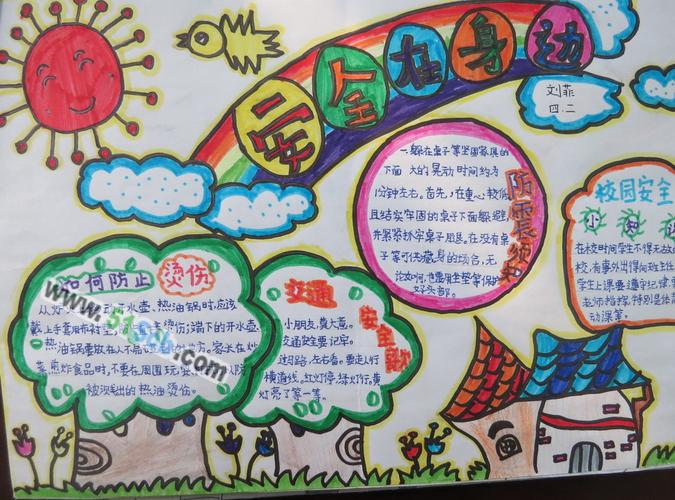 安全在身边
刘菲
四.二
一.躲在桌子等坚固家具的
下面 大的晃动时间约为
1分钟左右。首先,在重心较低
且结实牢固的桌子下面躲避,
并紧紧抓牢桌子用腿。在没有桌
子等可供藏身的场合,无
论如何,也要用坐垫等保护
好头部。
防震须知
校园安全
小知
在校时间学生不得无故
校,有事外出得向班主任
学生上课要遵守纪律,
老师指挥,特别是体
动课等。
如何防止 烫伤
开水壶、热油锅时,应该
戴上手套用布衬
烫伤;端下的开水壶、
热油锅要放在人不易
地方。家长在炒
菜、煎炸食品时,不要在周围玩
防
被溅出的热油烫伤。
交通
安全歌
小朋友,黄大莺。
交通安全要 记牢。
过马路,左右看。要走人行
横道线。红灯停,绿灯行,黄
灯亮了等一等。
www.51sck.com